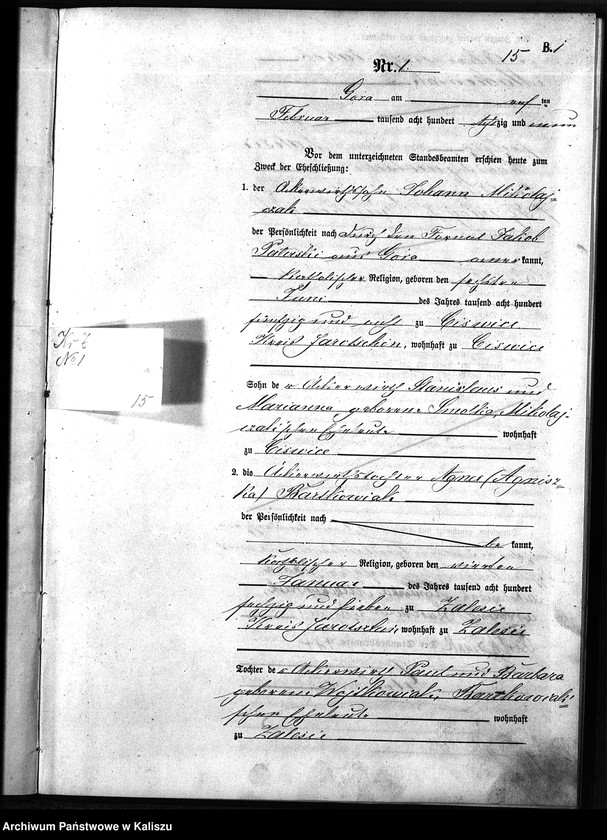 15 B.1
Nr. 1.
Gora am
Februar tausend acht hundert achtzig und neun
Vor dem unterzeichneten Standesbeamten erschien heute zum
Zweck der Eheschließung:
1. der Ackerwirthssohn Johann Mikolaj-
czak
der Persönlichkeit nach durch den Jakob
aus Gora anerkannt,
katholischer Religion, geboren den sechsten
Juni des Jahres tausend acht hundert
fünfzig und acht zu Ciswice
Kreis Jarotschin, wohnhaft zu Ciswice
Sohn des Ackerwirth Stanislaus und
Marianna geborene Smolka, Mikolaj-
czakschen Eheleute wohnhaft
zu Ciswice
2. die Ackerwirthstochter Agnes (Agnisz-
ka) Bartkowiak
der Persönlichkeit nach
be kannt,
katholischer Religion, geboren den vierten
Januar des Jahres tausend acht hundert
sechzig und sieben zu Zalesie
Kreis Jarotschin, wohnhaft zu Zalesie
Tochter des Ackerwirth Paul und Barbara
geborene Wojtkowiak, Bartkowiak-
schen Eheleute wohnhaft
zu Zalesie
No 1
15
Archiwum Państwowe w Kaliszu